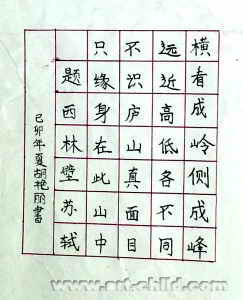 横看成岭侧成峰
远近高低各不同
不识庐山真面目
只缘身在此山中
题西林壁苏轼
己卯年夏胡艳丽書
www.art-child.com